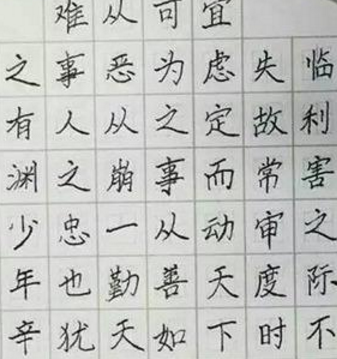 临利害之际不
失故常审度时
宜虑定而动天下
可为之事从善如
从恶从之崩一勤天
难事人之忠也犹
之有渊少年辛